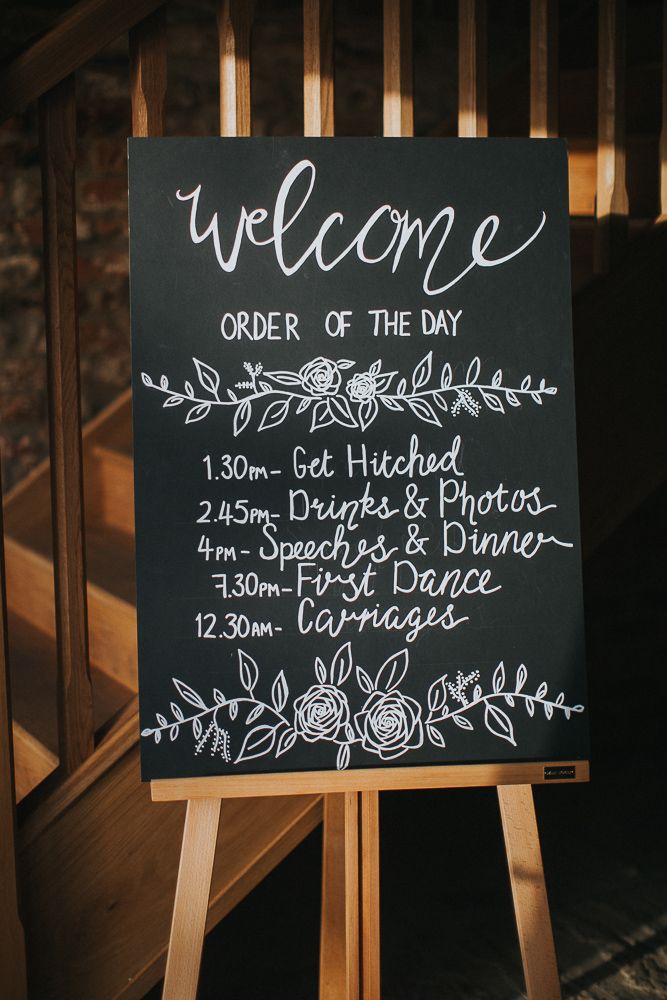 Welcome
ORDER OF THE DAY
1.30PM- Get Hitched
2.45PM- Drinks & Photos
4PM- Speeches & Dinner
7.30PM- First Dance
12.30AM- Carriages